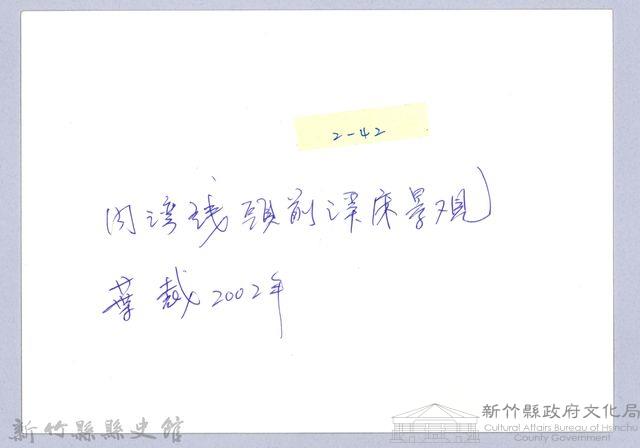 2-42
内湾线頭前溪床景观
葉 2002年
新竹縣縣史館
新竹縣政府文化局
Cultural Affairs Bureau of Hsinchu
County Government